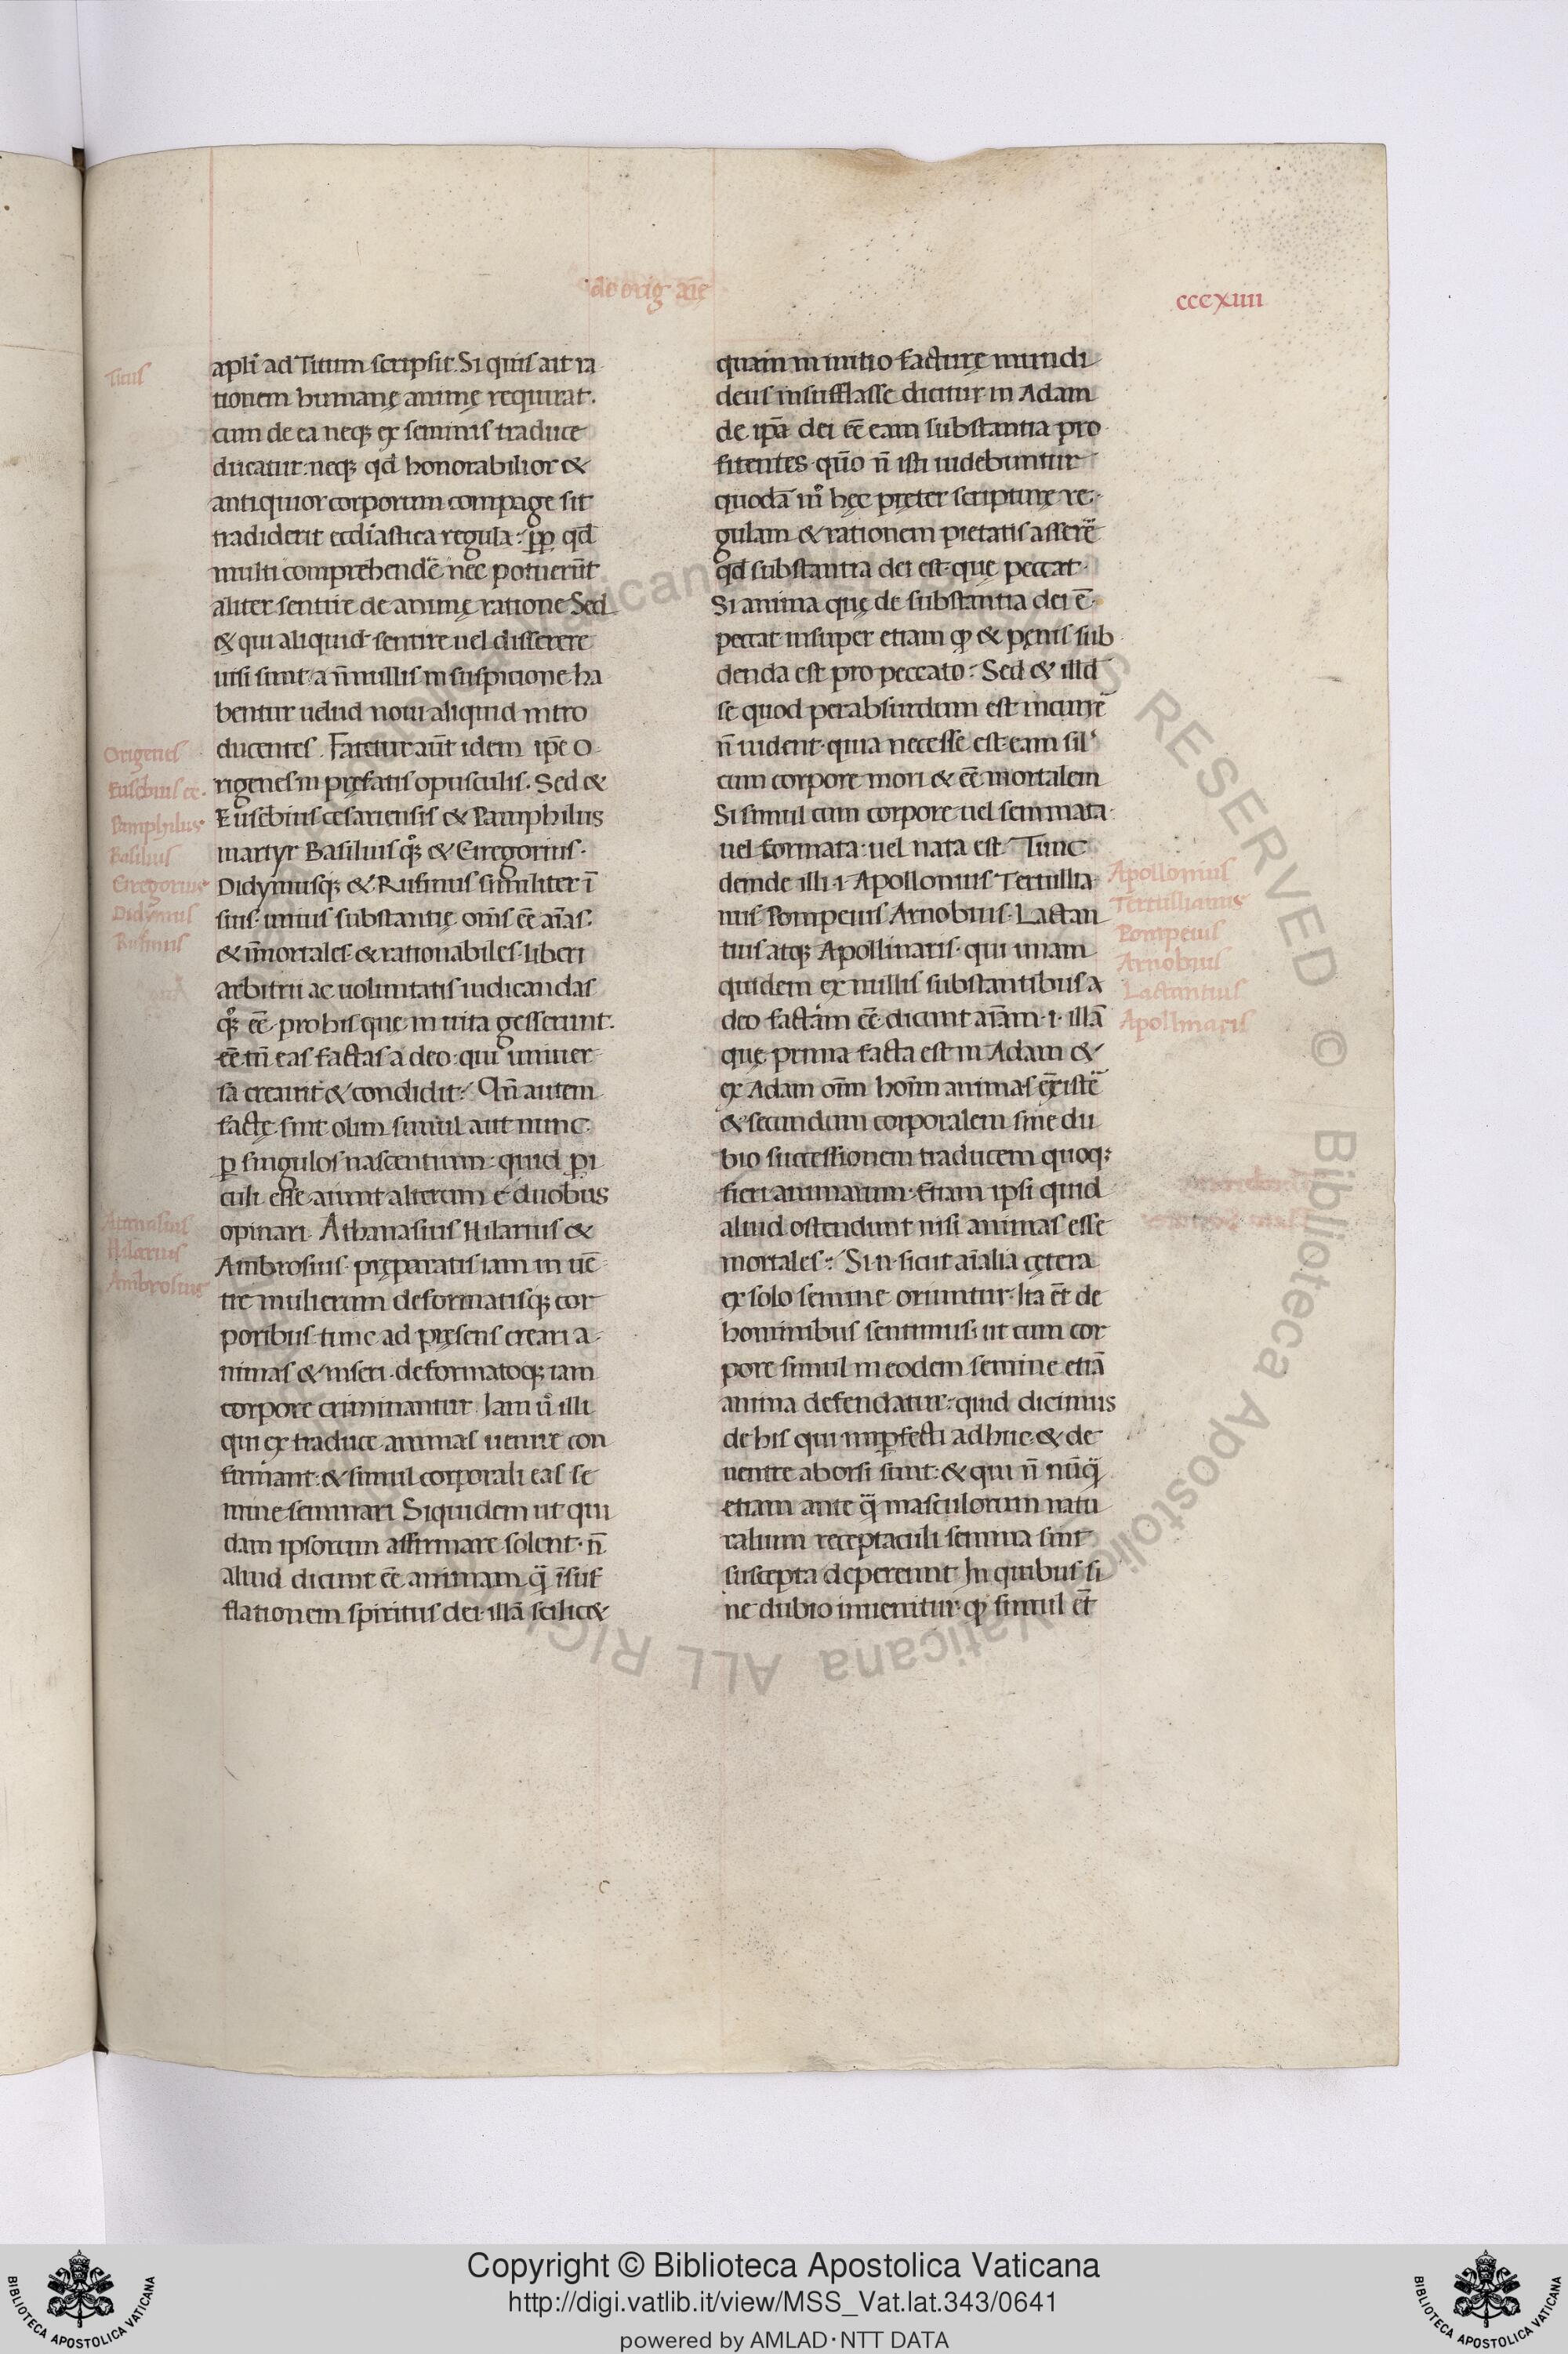 de orig aīe
cccxiiii
Titus
apl̄i ad Titum scripsit. Si quis ait ra
tionem humanę animę requirat.
cum de ea neq; ex seminis traduce
ducatur. neq; qd̄ honorabilior &
antiquior corporum compage sit
tradiderit eccl̄iastica regula. ꝓp qd̄
multi comprehendē nec potuer̄t
aliter sentire de animę ratione Sed
& qui aliquid sentire uel disserere
uisi sunt. a n̄nullis in suspicione ha
bentur uelud noui aliquid intro
ducentes. Fatetur aūt idem ip̄e O
rigenes in pręfatis opusculis. Sed &
Eusebius cesariensis & Pamphilus
martyr Basilius q̊; & Gregorius.
Didymusq; & Rufinus similiter ī
suis. unius substantię om̄s eē aīas.
& īmortales. & rationabiles. liberi
arbitrii ac uoluntatis iudicandas
q̊; eē. pro his que in uita gesserunt.
eē tn̄ eas factas a deo. qui uniuer
sa creauit & condidit. An̄ autem
factę sint olim simul aut nunc
ꝑ singulos nascentium. quid ꝑi
culi esse aiunt alterum e duobus
opinari. Athanasius Hilarius &
Ambrosius. pręparatis iam in uē
tre mulierum deformatisq; cor
poribus. tunc ad pręsens creari a
nimas & inseri. deformatoq; iam
corpore criminantur. Iam ů illi
qui ex traduce animas uenire con
firmant. & simul corporali eas se
mine seminari Siquidem ut qui
dam ipsorum affirmare solent. n̄
aliud dicunt eē animam q̄ īsuf
flationem spiritus dei. illā scilic&
Origenes
Eusebius ce.
Pamphilus
Basilius
Gregorius
Didymus
Rufinus
Atanasius
Hilarius
Ambrosius
quam in initio facturę mundi
deus insufflasse dicitur in Adam
de ip̄a dei eē eam substantia pro
fitentes. quō n̄ isti uidebuntur
quodā m̊ hęc pręter scripturę re
gulam & rationem pietatis asserē
qd̄ substantia dei est que peccat.
Si anima quę de substantia dei ē.
peccat insuper etiam qđ & pęnis sub
denda est pro peccato. Sed & illd̄
se quod perabsurdum est incurrē
n̄ uident. quia necesse est eam sil'
cum corpore mori & eē mortalem
Si simul cum corpore uel seminata
uel formata. uel nata est. Tunc
deinde illi .i. Apollonius Tertullia
nus Pompeius Arnobius. Lactan
tius atq; Apollinaris. qui unam
quidem ex nullis substantibus a
deo factam eē dicunt aīam .i. illā
quę prima facta est in Adam &
ex Adam om̄m hoīm animas existē
& secundum corporalem sine du
bio successionem traducem quoq;
fieri animarum. Etiam ipsi quid
aliud ostendunt nisi animas esse
mortales. Si .n. sicut aīalia cętera
ex solo semine oriuntur. Ita et̄ de
hominibus sentimus. ut cum cor
pore simul in eodem semine etiā
anima defendatur. quid dicimus
de his qui imꝑfecti adhuc. & de
uentre aborsi sunt. & qui n̄ nūq̄
etiam ante q̄ masculorum natu
ralium receptaculi semina sint
suscepta depereunt In quibus si
ne dubio inuenitur. qđ simul et̄
Apollonius
Tertullianus
Pompeius
Arnobius
Lactantius
Apollinaris
© Biblioteca Apostolica Vaticana ALL RIGHTS RESERVED
Copyright © Biblioteca Apostolica Vaticana
http://digi.vatlib.it/view/MSS_Vat.lat.343/0641
powered by AMLAD·NTT DATA
BIBLIOTECA APOSTOLICA VATICANA
BIBLIOTECA APOSTOLICA VATICANA